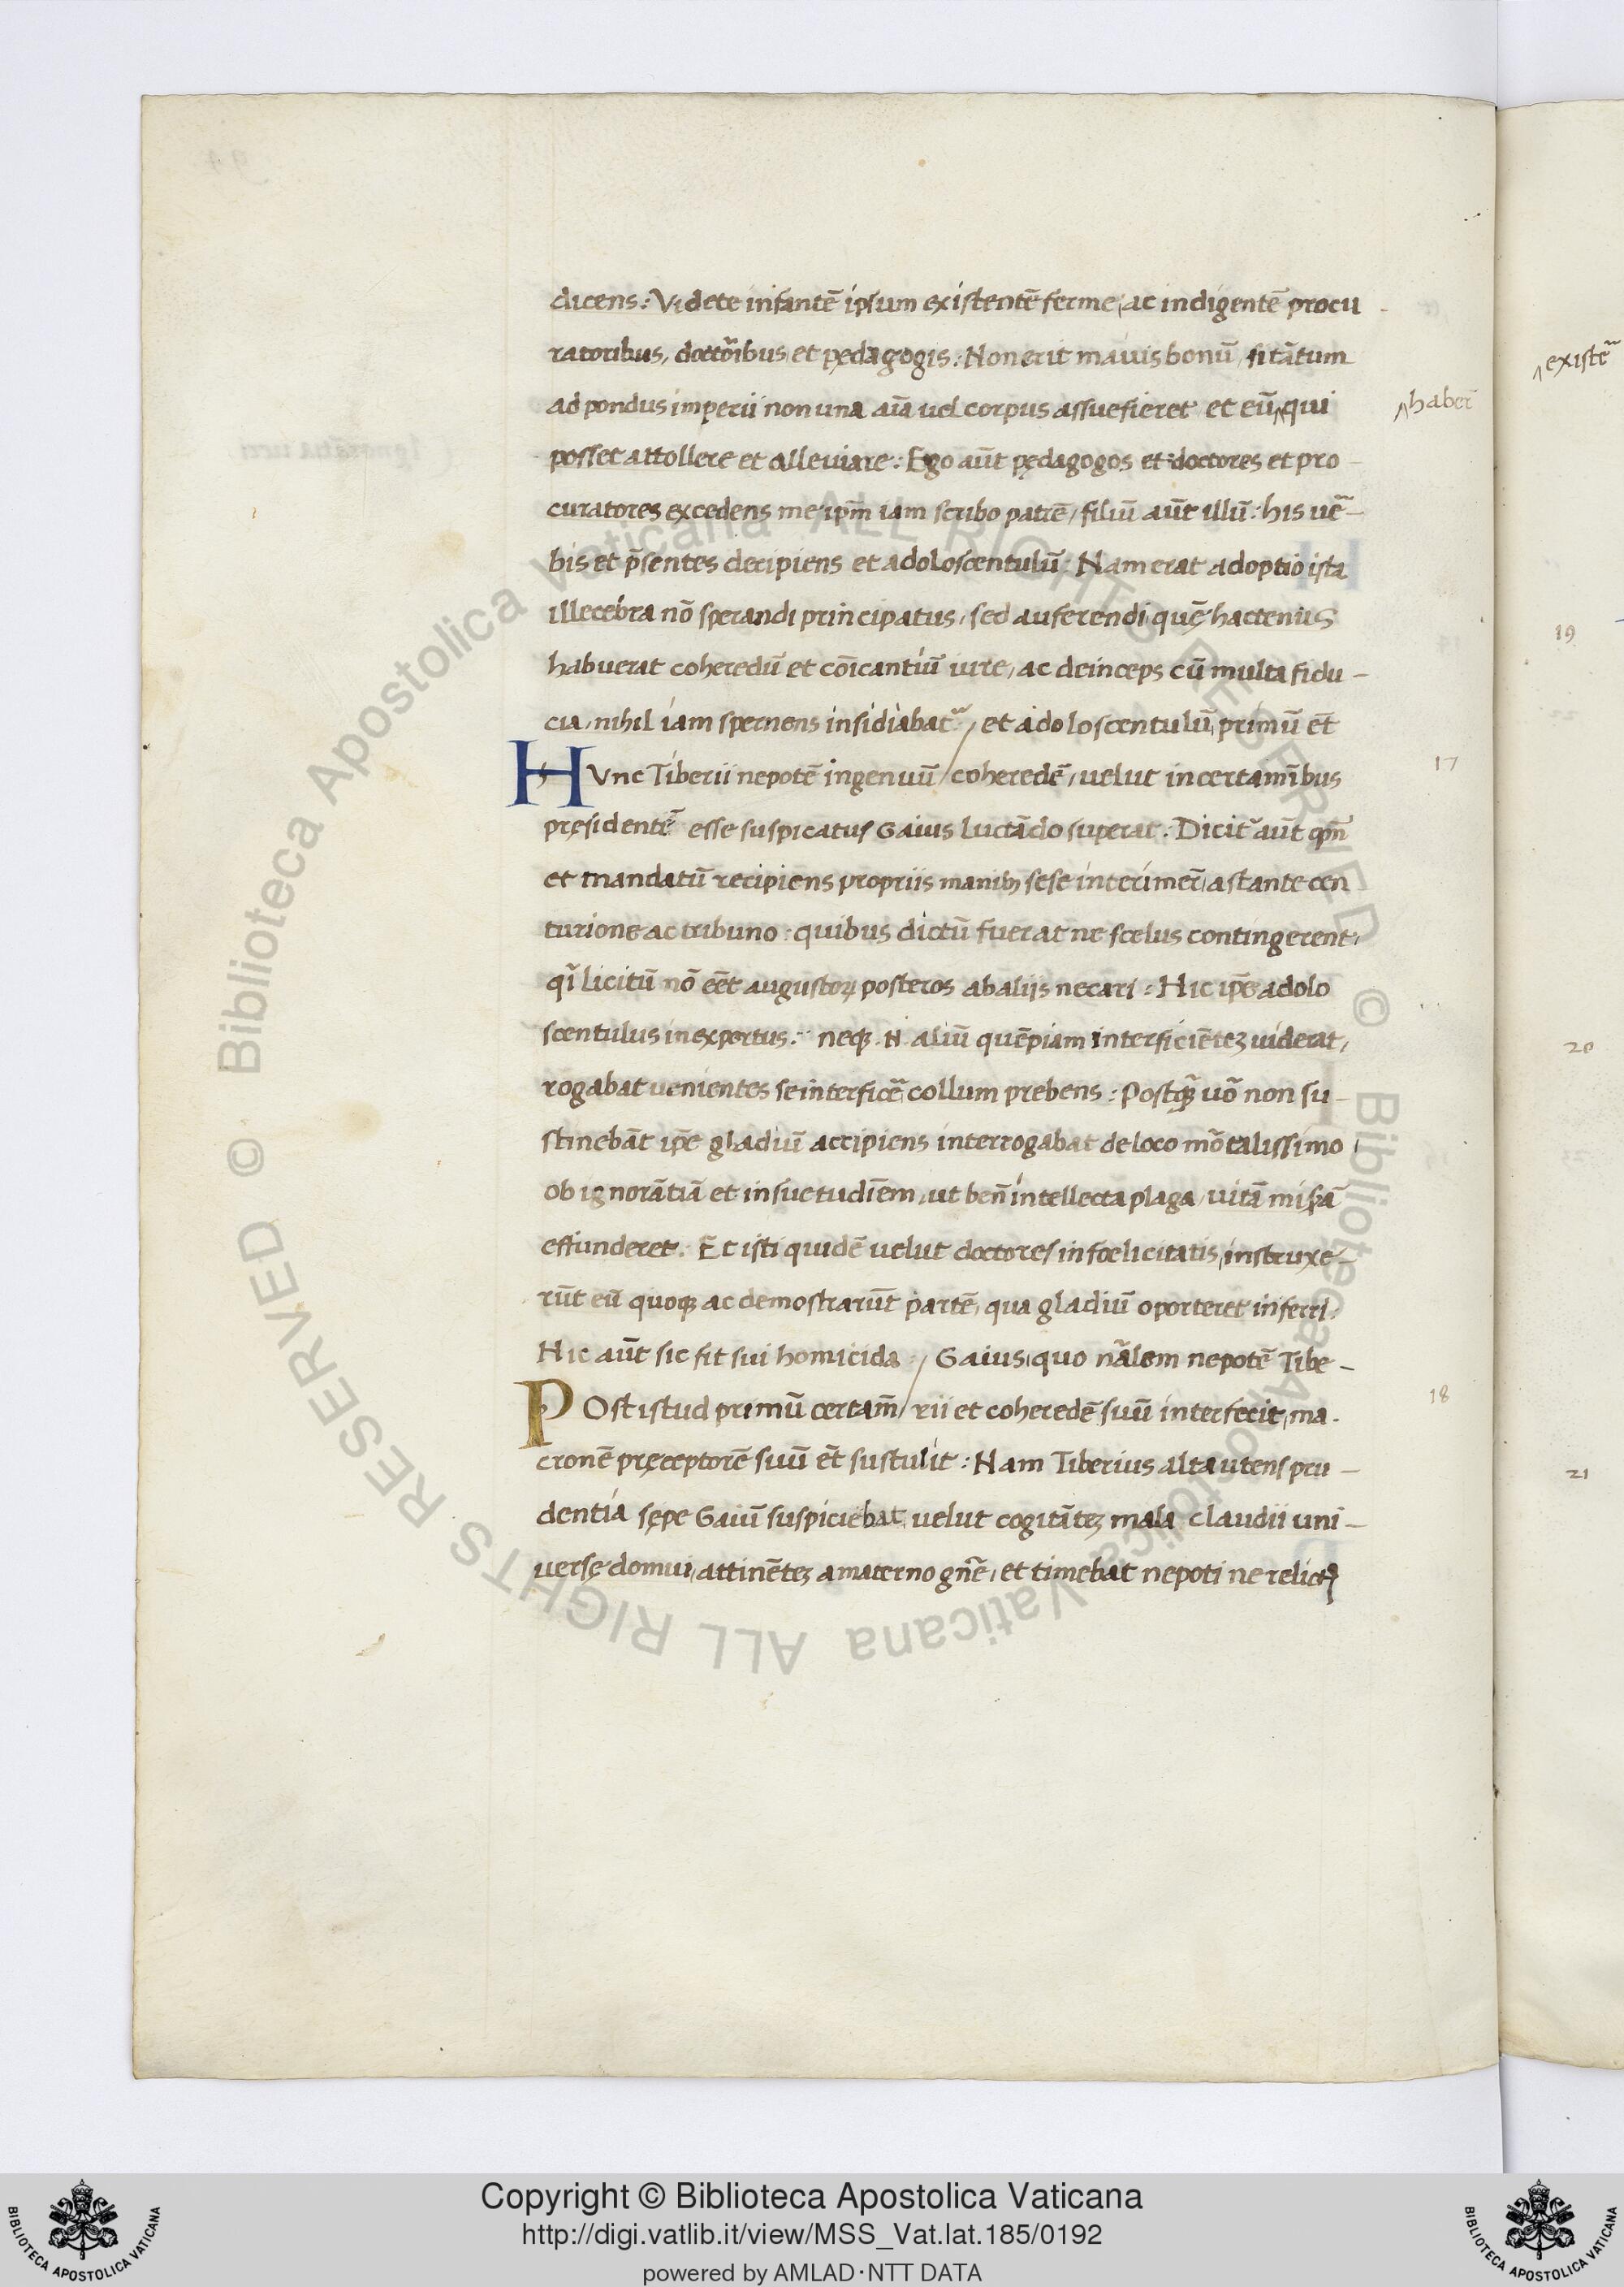 dicens: Videte infantē ipsum existentē ferme, ac indigentē procu
ratoribus, doctoribus, et pędagogis: Non erit mauis bonū, si tātum
ad pondus imperii non una aīa uel corpus assuefieret et eū qui
haber̄
posset attollere et alleuiare: Ego aūt pędagogos et doctores et pro-
curatores excedens me ip̄m iam scribo patrē, filiū aūt illū: his ue᷑-
bis et p̄sentes decipiens et adoloscentulū: Nam erat adoptio ista
illecebra nō sperandi principatus, sed auferendi quę̄ hactenus
habuerat coheredū et cōicantiū iure, ac deinceps cū multa fidu-
cia, nihil iam spernens insidiabat᷑, et adoloscentulū, primū et̄
HVnc Tiberii nepotē ingenuū/coheredē, uelut in certamībus
17
pręsidentē esse suspicatus Gaius luctādo superat. Dicit᷑ aūt qm̄
et mandatū recipiens propriis manibꝫ sese interimer̄, astante cen
turione ac tribuno: quibus dictū fuerat ne scelus contingerent,
qī licitū nō eēt augustoꝝ posteros ab aliis necari: Hic ip̄e adolo
scentulus inexpertus: neqꝫ .N. aliū quēpiam interficiēteꝫ uiderat,
rogabat uenientes se interfice᷑ collum prebens: Postqꝫ uō non su-
stinebāt ip̄e gladiū accipiens interrogabat de loco mōtalissimo
ob ignorātiā et insuetudīem, ut ben̄ intellecta plaga, uitā mis̄ā
effunderet. Et isti quidē uelut doctores infoelicitatis, instruxe-
rūt eū quoqꝫ ac demostrarūt partē, qua gladiū oporteret inferri.
Hic aūt sic fit sui homicida:/ Gaius, quo nālem nepotē Tibe-
POst istud primū certam̄/ rii et coheredē suū interfecit, ma.
18
cronē pręceptorē suū et̄ sustulit: Nam Tiberius alta utens pru-
dentia sępe Gaiū suspiciebat, uelut cogitāteꝫ mala claudii uni-
uersę domui, attinēteꝫ a materno gn̄e, et timebat nepoti ne relictꝰ
existe᷑
19
20
21
Copyright © Biblioteca Apostolica Vaticana
http://digi.vatlib.it/view/MSS_Vat.lat.185/0192
powered by AMLAD·NTT DATA
BIBLIOTECA APOSTOLICA VATICANA
BIBLIOTECA APOSTOLICA VATICANA
© Biblioteca Apostolica Vaticana ALL RIGHTS RESERVED
© Biblioteca Apostolica Vaticana ALL RIGHTS RESERVED